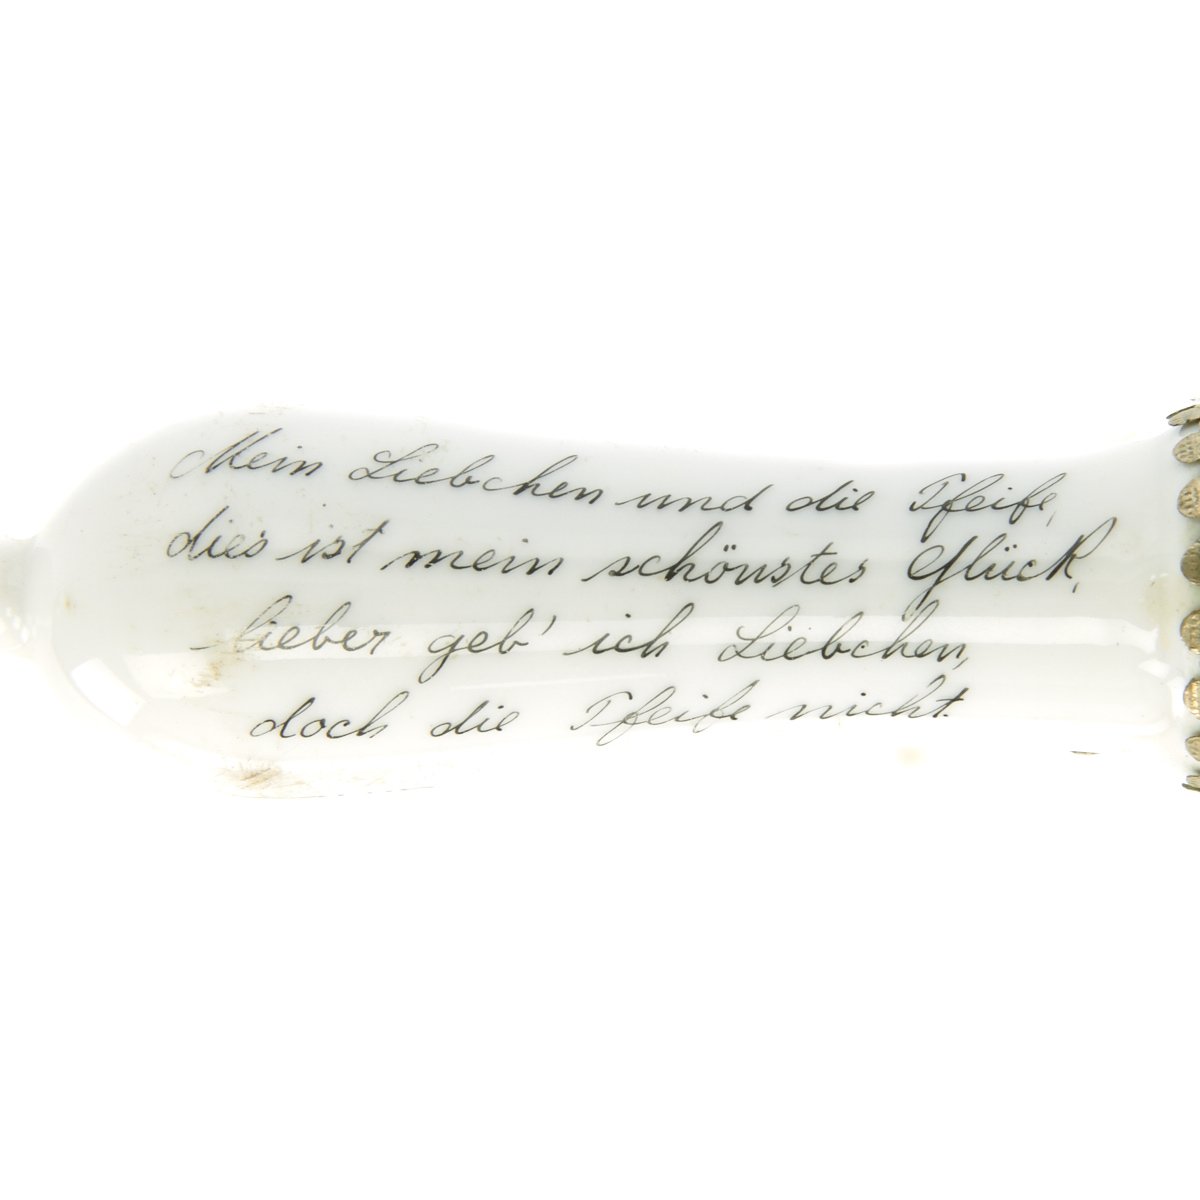 Mein Liebchen und die Pfeife,
dies ist mein schönstes Glück,
lieber geb' ich Liebchen,
doch die Pfeife nicht.